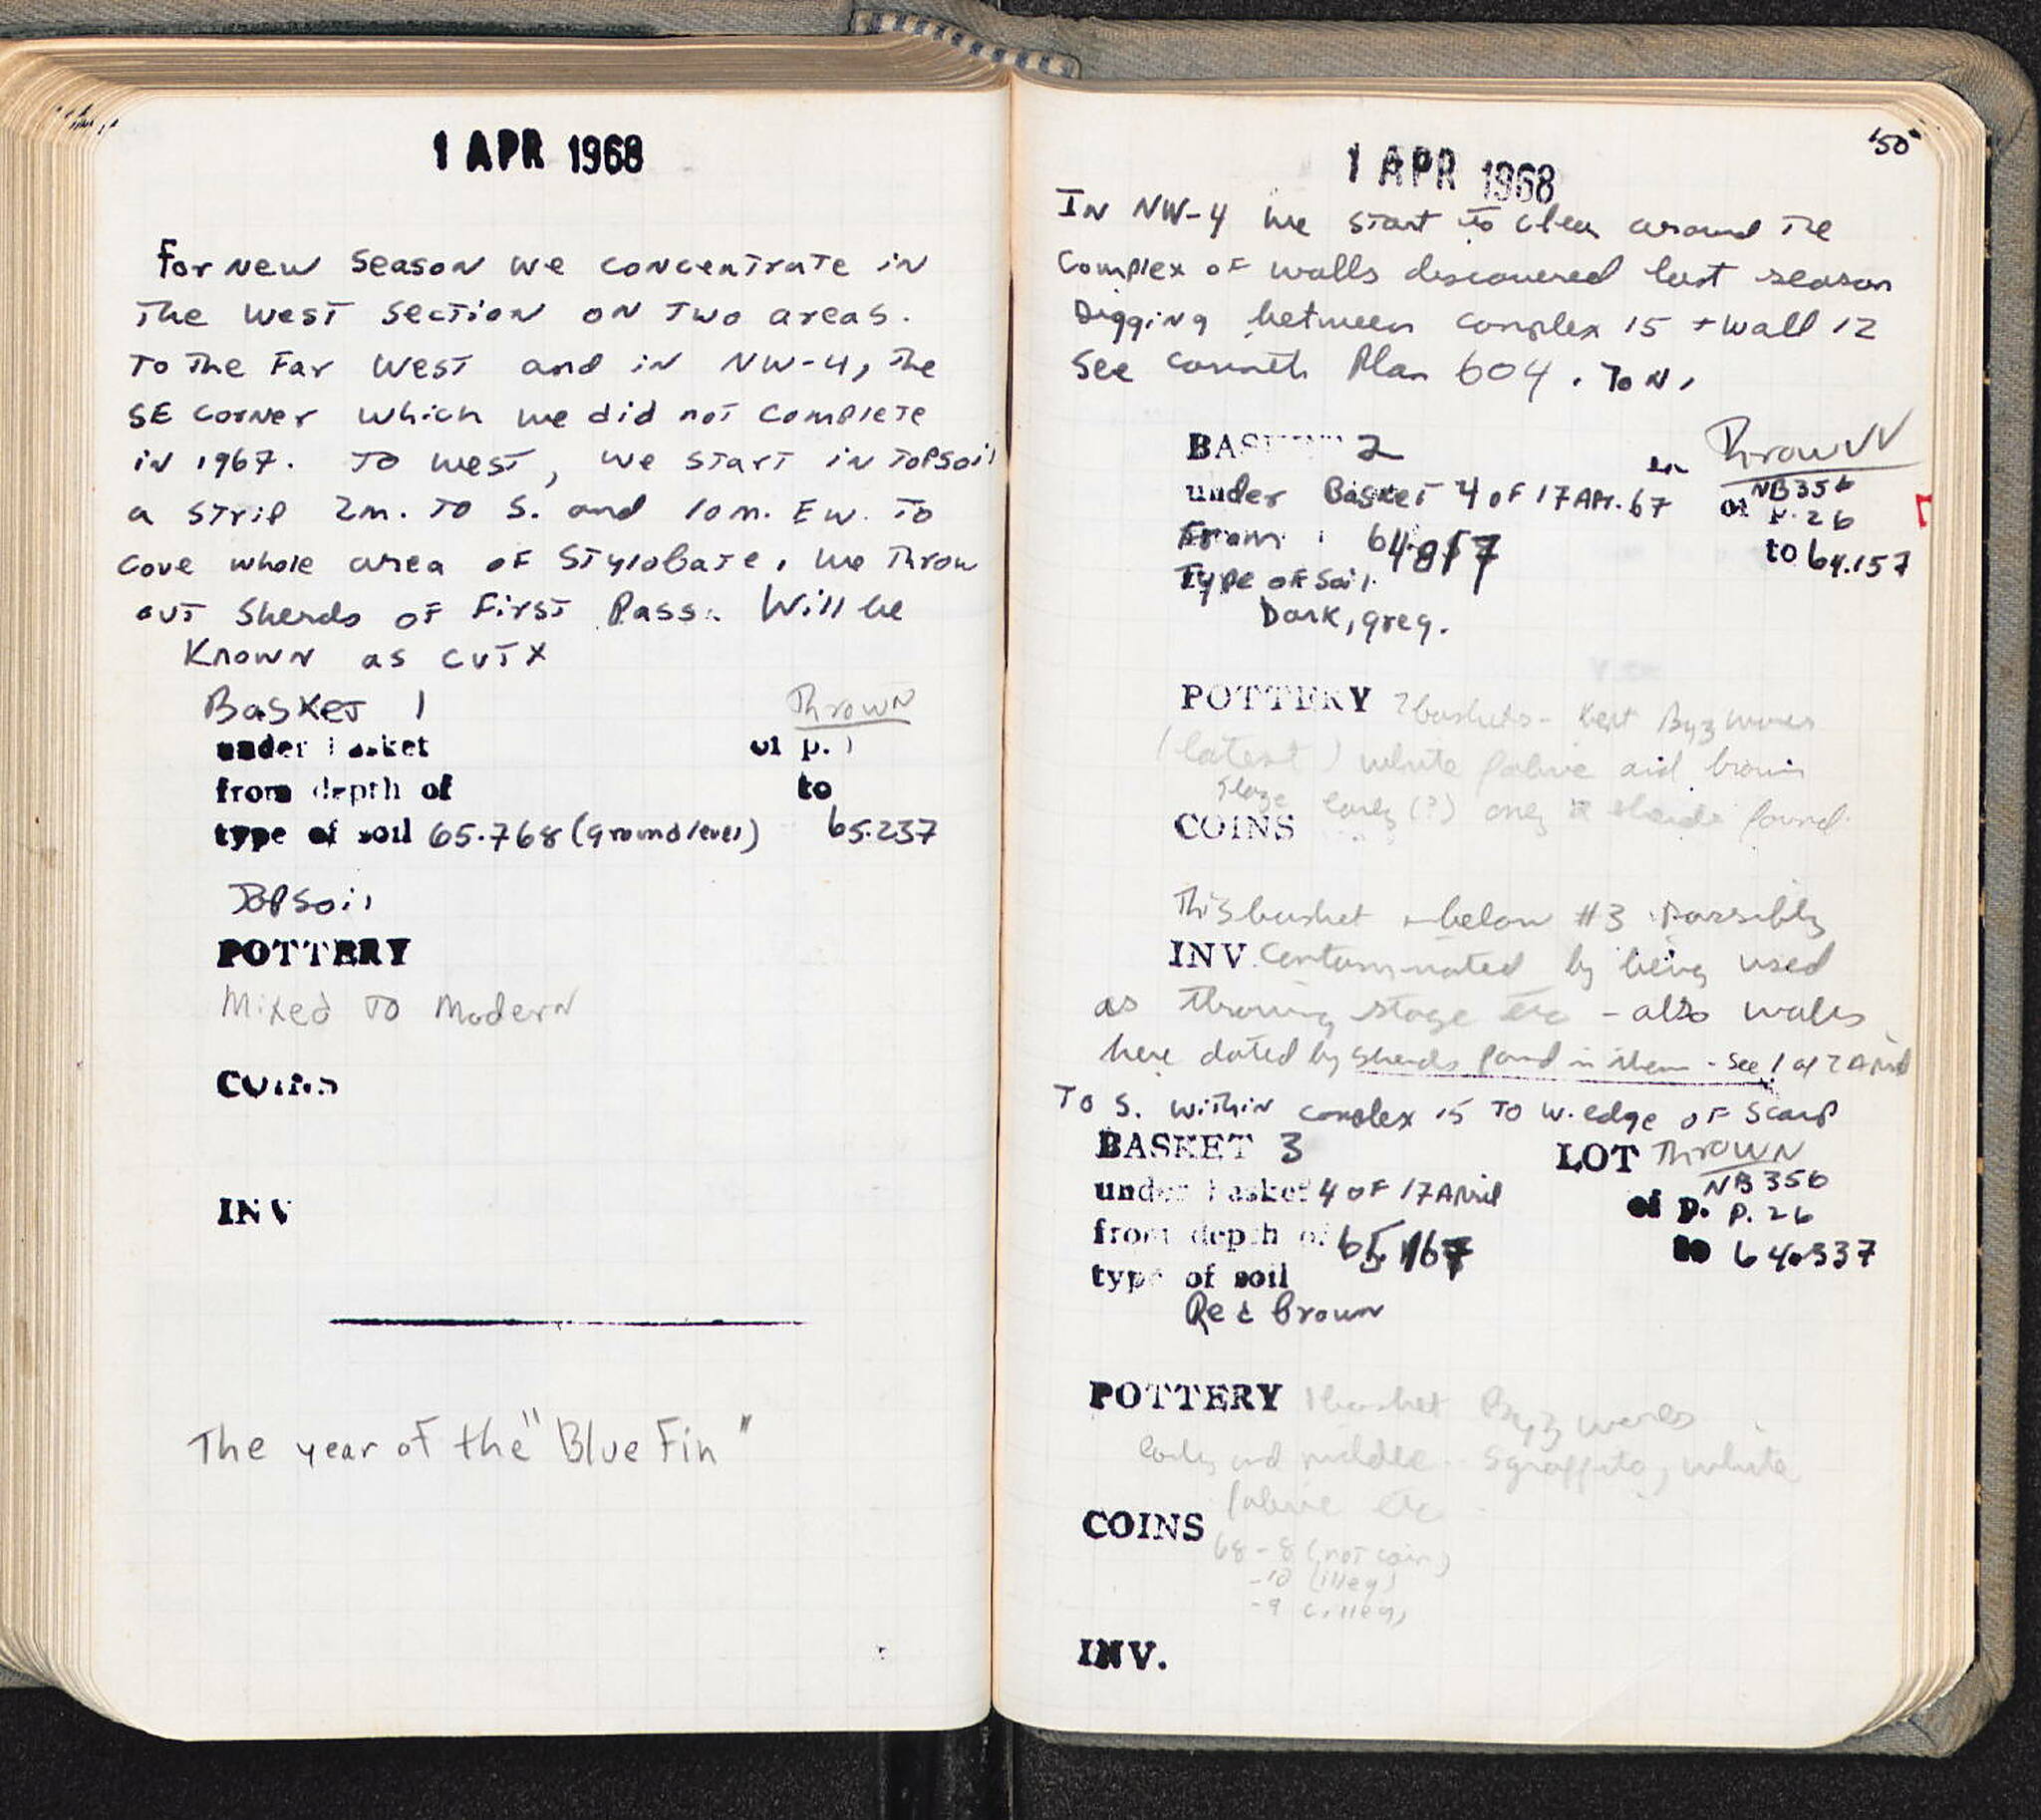 1 APR 1968
For New Season we concentrate in
The West Section on Two areas.
To The Far West and in NW-4, the
SE Corner which we did not complete
in 1967. To West, we start in Topsoil
a strip 2m. To S. and 10m. EW. To
Cove whole area of Stylobate, we Throw
out Sherds of First Pass. Will be
Known as cut X
Basket 1 Thrown
under basket of p. 1
from depth of to
type of soil 65.768 (ground level) 65.237
Topsoil
POTTERY
Mixed To Modern
COINS
INV
The year of the "Blue Fin"
50
1 APR 1968
In NW-4 we start to clear around The
Complex of walls discovered last season
Digging between complex 15 + wall 12
See Corinth Plan 604. To N.
BASKET 2 Thrown
under Basket 4 of 17 Apr. 67 NB 356
of p. 26
From to 64.157
Type of Soil
Dark, grey.
POTTERY 2 baskets - Kept Byz wares
(latest) white fabric and brown
glaze early (?) only 2 sherds found
COINS
This basket + below #3 possibly
INV. Contaminated by being used
as throwing stage etc - also walls
here dated by sherds found in them - See 1 of 2 April
To S. within complex 15 To W. edge of Scarp
BASKET 3 LOT Thrown
under basket 4 of 17 April NB 356
of p. P. 26
from depth of 65.167 to 64.337
type of soil
Red Brown
POTTERY 1 basket Byz wares
early and middle - Sgraffito, white
fabric etc
COINS 68-8 (not coin)
-10 (illeg)
-9 (illeg)
INV.